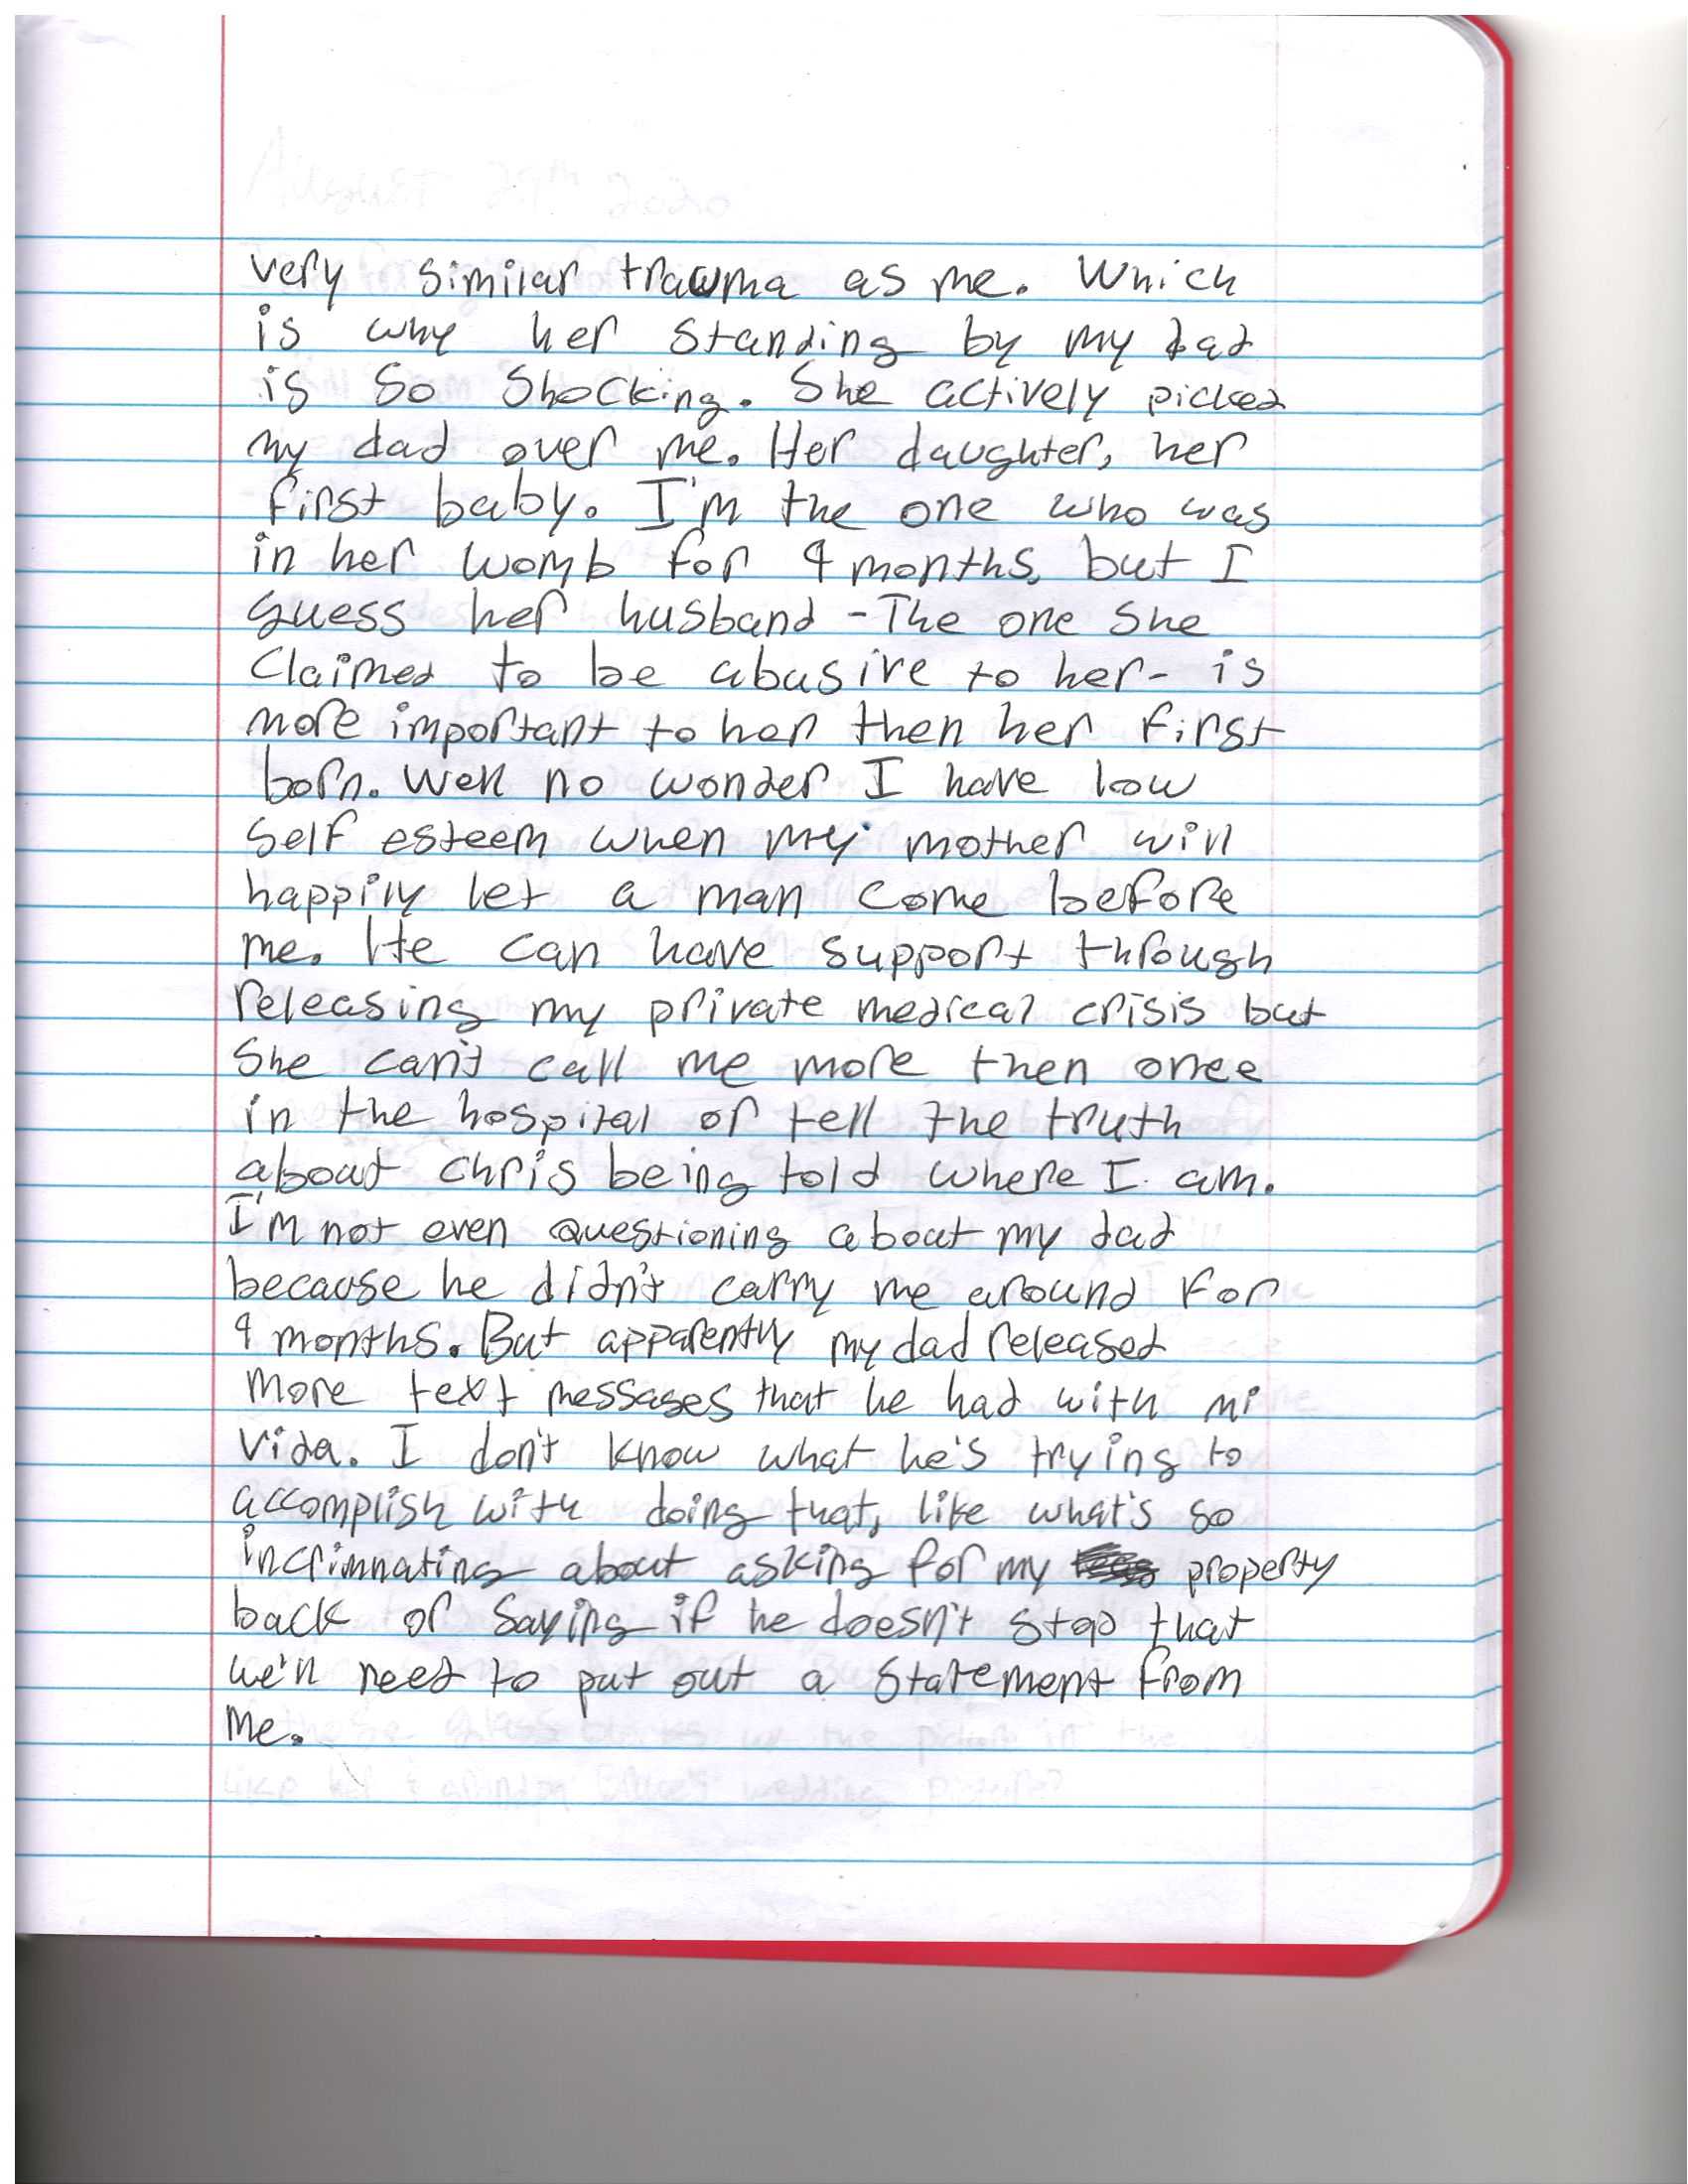 August 29th 2020
very similar trauma as me. Which
is why her standing by my dad
is so shocking. She actively picked
my dad over me. Her daughter, her
first baby. I'm the one who was
in her womb for 9 months, but I
guess her husband - The one she
claimed to be abusive to her - is
more important to her then her first
born. Well no wonder I have low
self esteem when my mother will
happily let a man come before
me. He can have support through
releasing my private medical crisis but
she can't call me more then once
in the hospital or tell the truth
about chris being told where I am.
I'm not even questioning about my dad
because he didn't carry me around for
9 months. But apparently my dad released
more text messages that he had with mi
vida. I don't know what he's trying to
accomplish with doing that, like what's so
incrimnating about asking for my property
back or saying if he doesn't stop that
we'll need to put out a statement from
me.